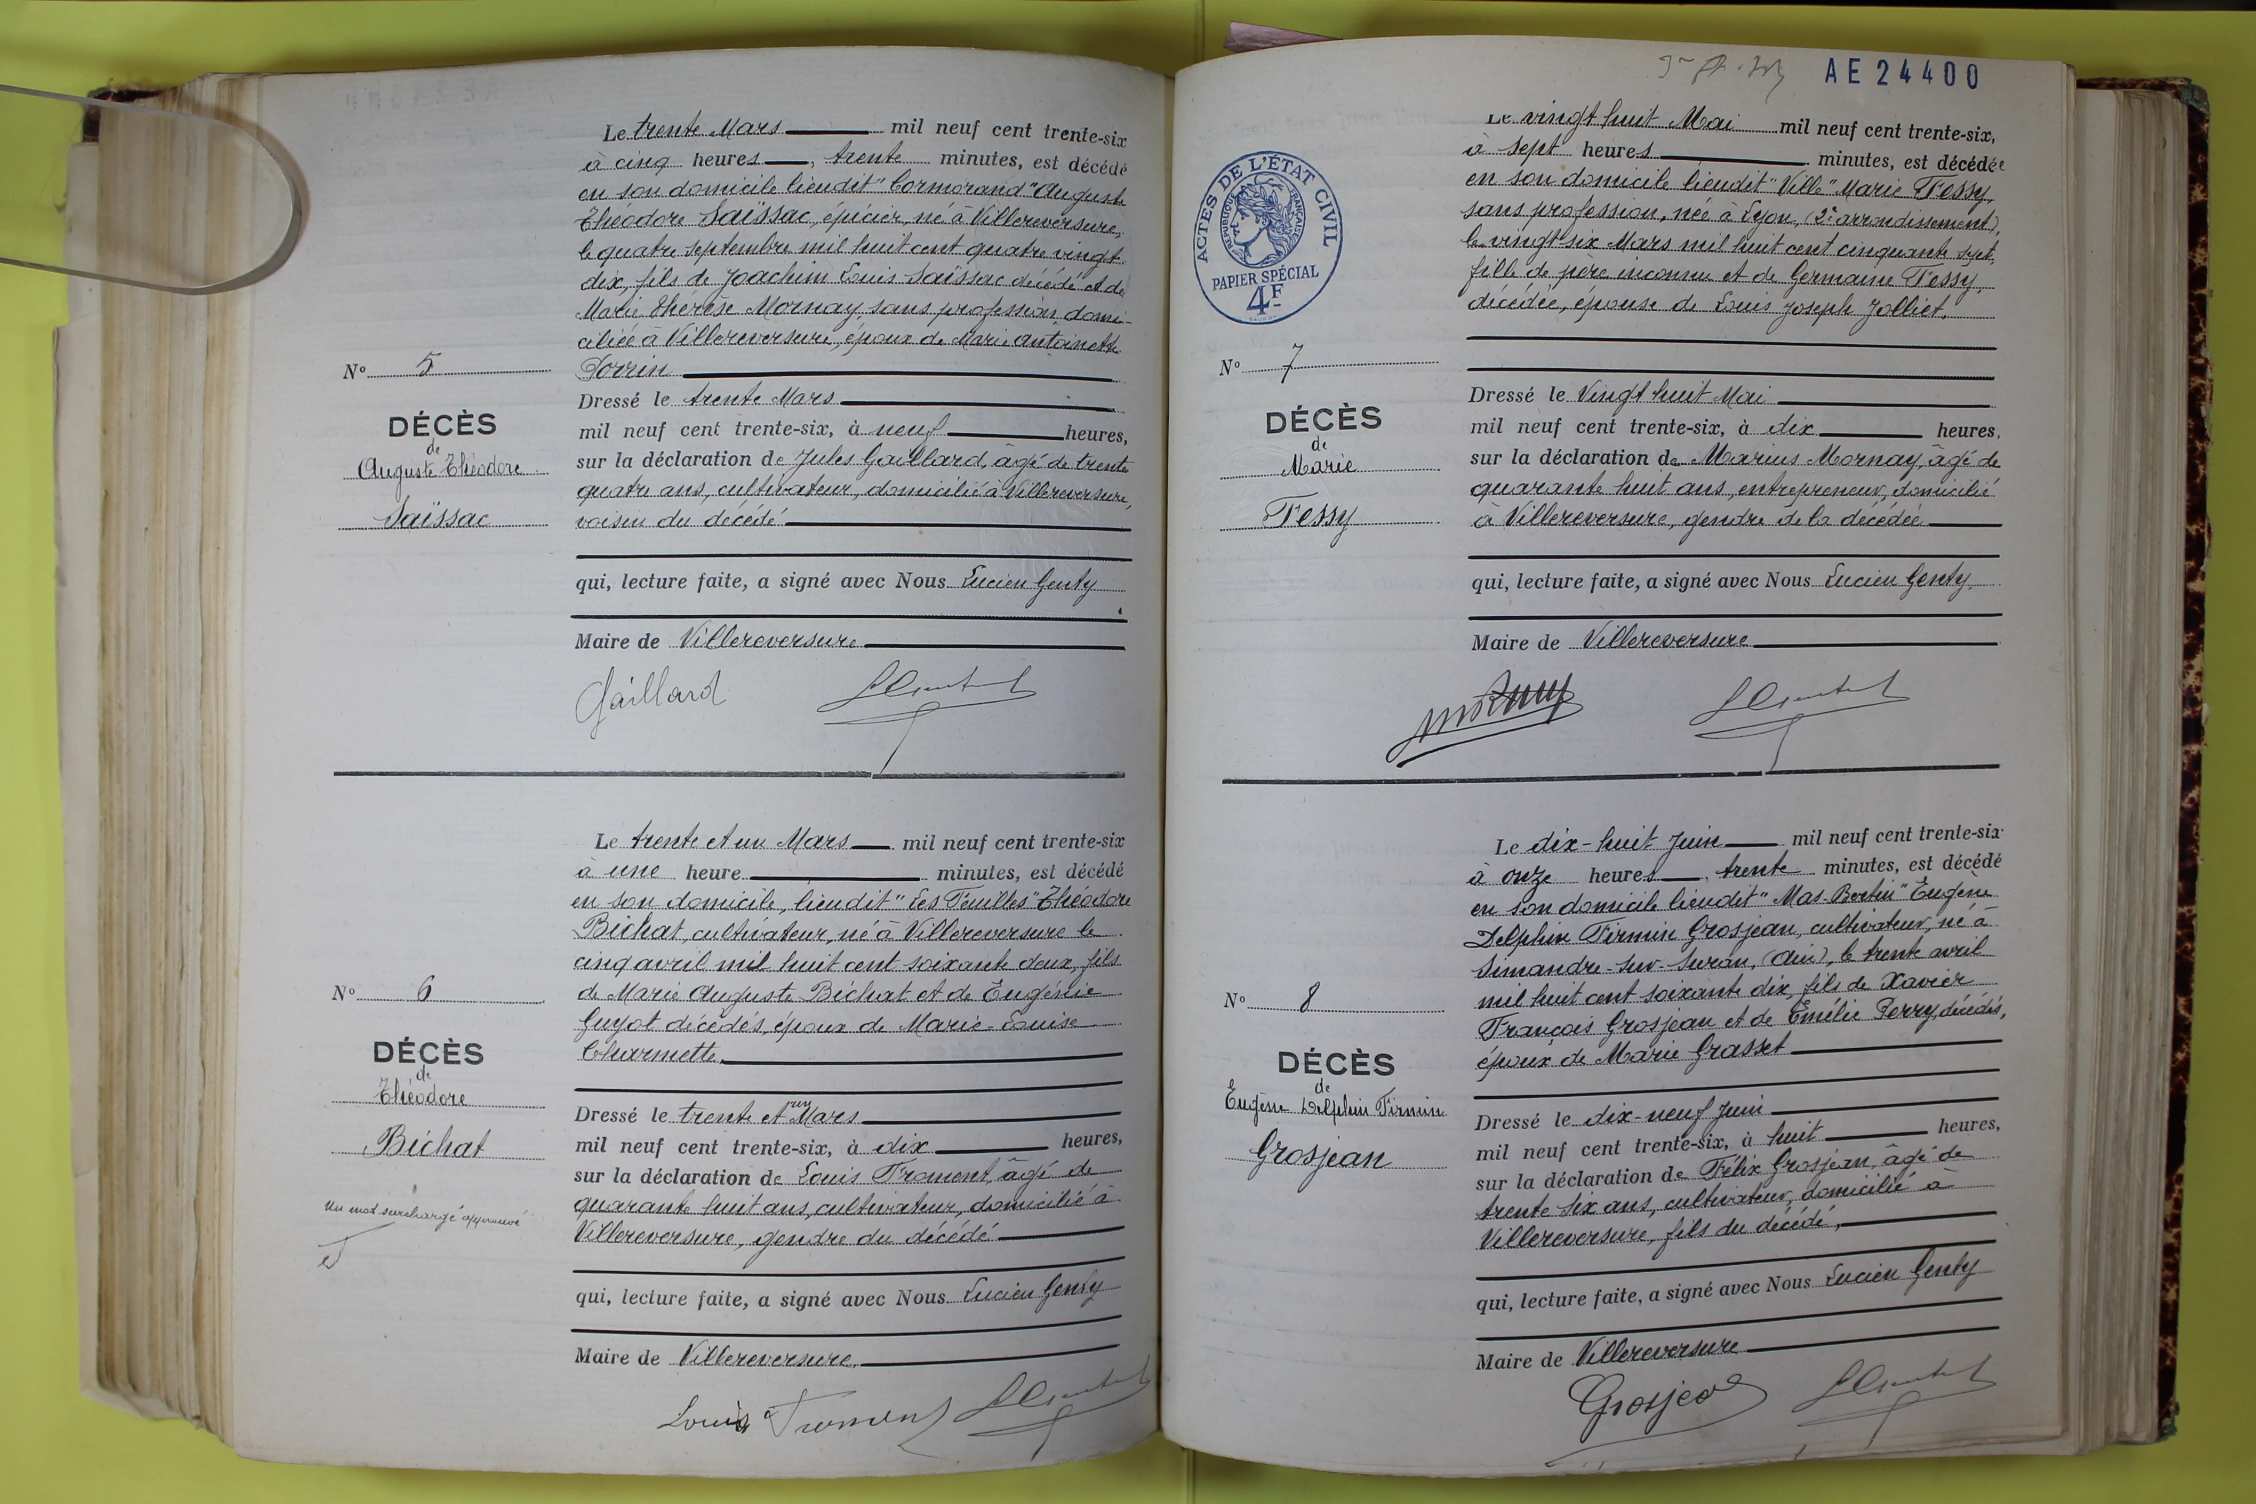 Le trente Mars mil neuf cent trente-six
à cinq heures, trente minutes, est décédé
en son domicile lieudit "Cormorand" Auguste
Théodore Saïssac, épicier, né à Villereversure,
le quatre septembre mil huit cent quatre vingt
dix, fils de Joachim Louis Saïssac décédé et de
Marie Thérèse Mornay, sans profession, domi-
ciliée à Villereversure, époux de Marie Antoinette
Dressé le trente Mars
mil neuf cent trente-six, à neuf heures,
sur la déclaration de Jules Gaillard, âgé de trente
quatre ans, cultivateur, domicilié à Villereversure,
voisin du décédé
qui, lecture faite, a signé avec Nous Lucien Genty
Maire de Villereversure
Gaillard
N° 5
DÉCÈS
de
Auguste Théodore
Saïssac
Le trente et un Mars mil neuf cent trente-six
à une heure minutes, est décédé
en son domicile, lieudit "Les Feuilles" Théodore
Bichat, cultivateur, né à Villereversure le
cinq avril mil huit cent soixante deux, fils
de Marie Auguste Bichat et de Eugénie
Guyot décédés, époux de Marie-Louise
Charmette
Dressé le trente et un Mars
mil neuf cent trente-six, à dix heures,
sur la déclaration de Louis Froment, âgé de
quarante huit ans, cultivateur, domicilié à
Villereversure, gendre du décédé
qui, lecture faite, a signé avec Nous Lucien Genty
Maire de Villereversure
Louis Froment
N° 6
DÉCÈS
de
Théodore
Bichat
Un mot surchargé approuvé
AE24400
ACTES DE L'ÉTAT CIVIL
RÉPUBLIQUE FRANÇAISE
PAPIER SPÉCIAL
4F
Le vingt huit Mai mil neuf cent trente-six,
à sept heures minutes, est décédée
en son domicile lieudit "Ville" Marie Fessy,
sans profession, née à Lyon, (2e arrondissement),
le vingt-six Mars mil huit cent cinquante sept,
fille de père inconnu et de Germaine Fessy,
décédée, épouse de Louis Joseph Jolliet.
Dressé le Vingt huit Mai
mil neuf cent trente-six, à dix heures,
sur la déclaration de Marius Mornay, âgé de
quarante huit ans, entrepreneur, domicilié
à Villereversure, gendre de la décédée
qui, lecture faite, a signé avec Nous Lucien Genty,
Maire de Villereversure
Mornay
N° 7
DÉCÈS
de
Marie
Fessy
Le dix-huit Juin mil neuf cent trente-six
à onze heures, trente minutes, est décédé
en son domicile lieudit "Mas-Bertin" Eugène
Delphin Firmin Grosjean, cultivateur, né à
Simandre-sur-Suran, (Ain), le trente avril
mil huit cent soixante dix, fils de Xavier
François Grosjean et de Émélie Perry, décédés,
époux de Marie Grasset
Dressé le dix-neuf Juin
mil neuf cent trente-six, à huit heures,
sur la déclaration de Félix Grosjean, âgé de
trente six ans, cultivateur, domicilié à
Villereversure, fils du décédé,
qui, lecture faite, a signé avec Nous Lucien Genty
Maire de Villereversure
Grosjean
N° 8
DÉCÈS
de
Eugène Delphin Firmin
Grosjean